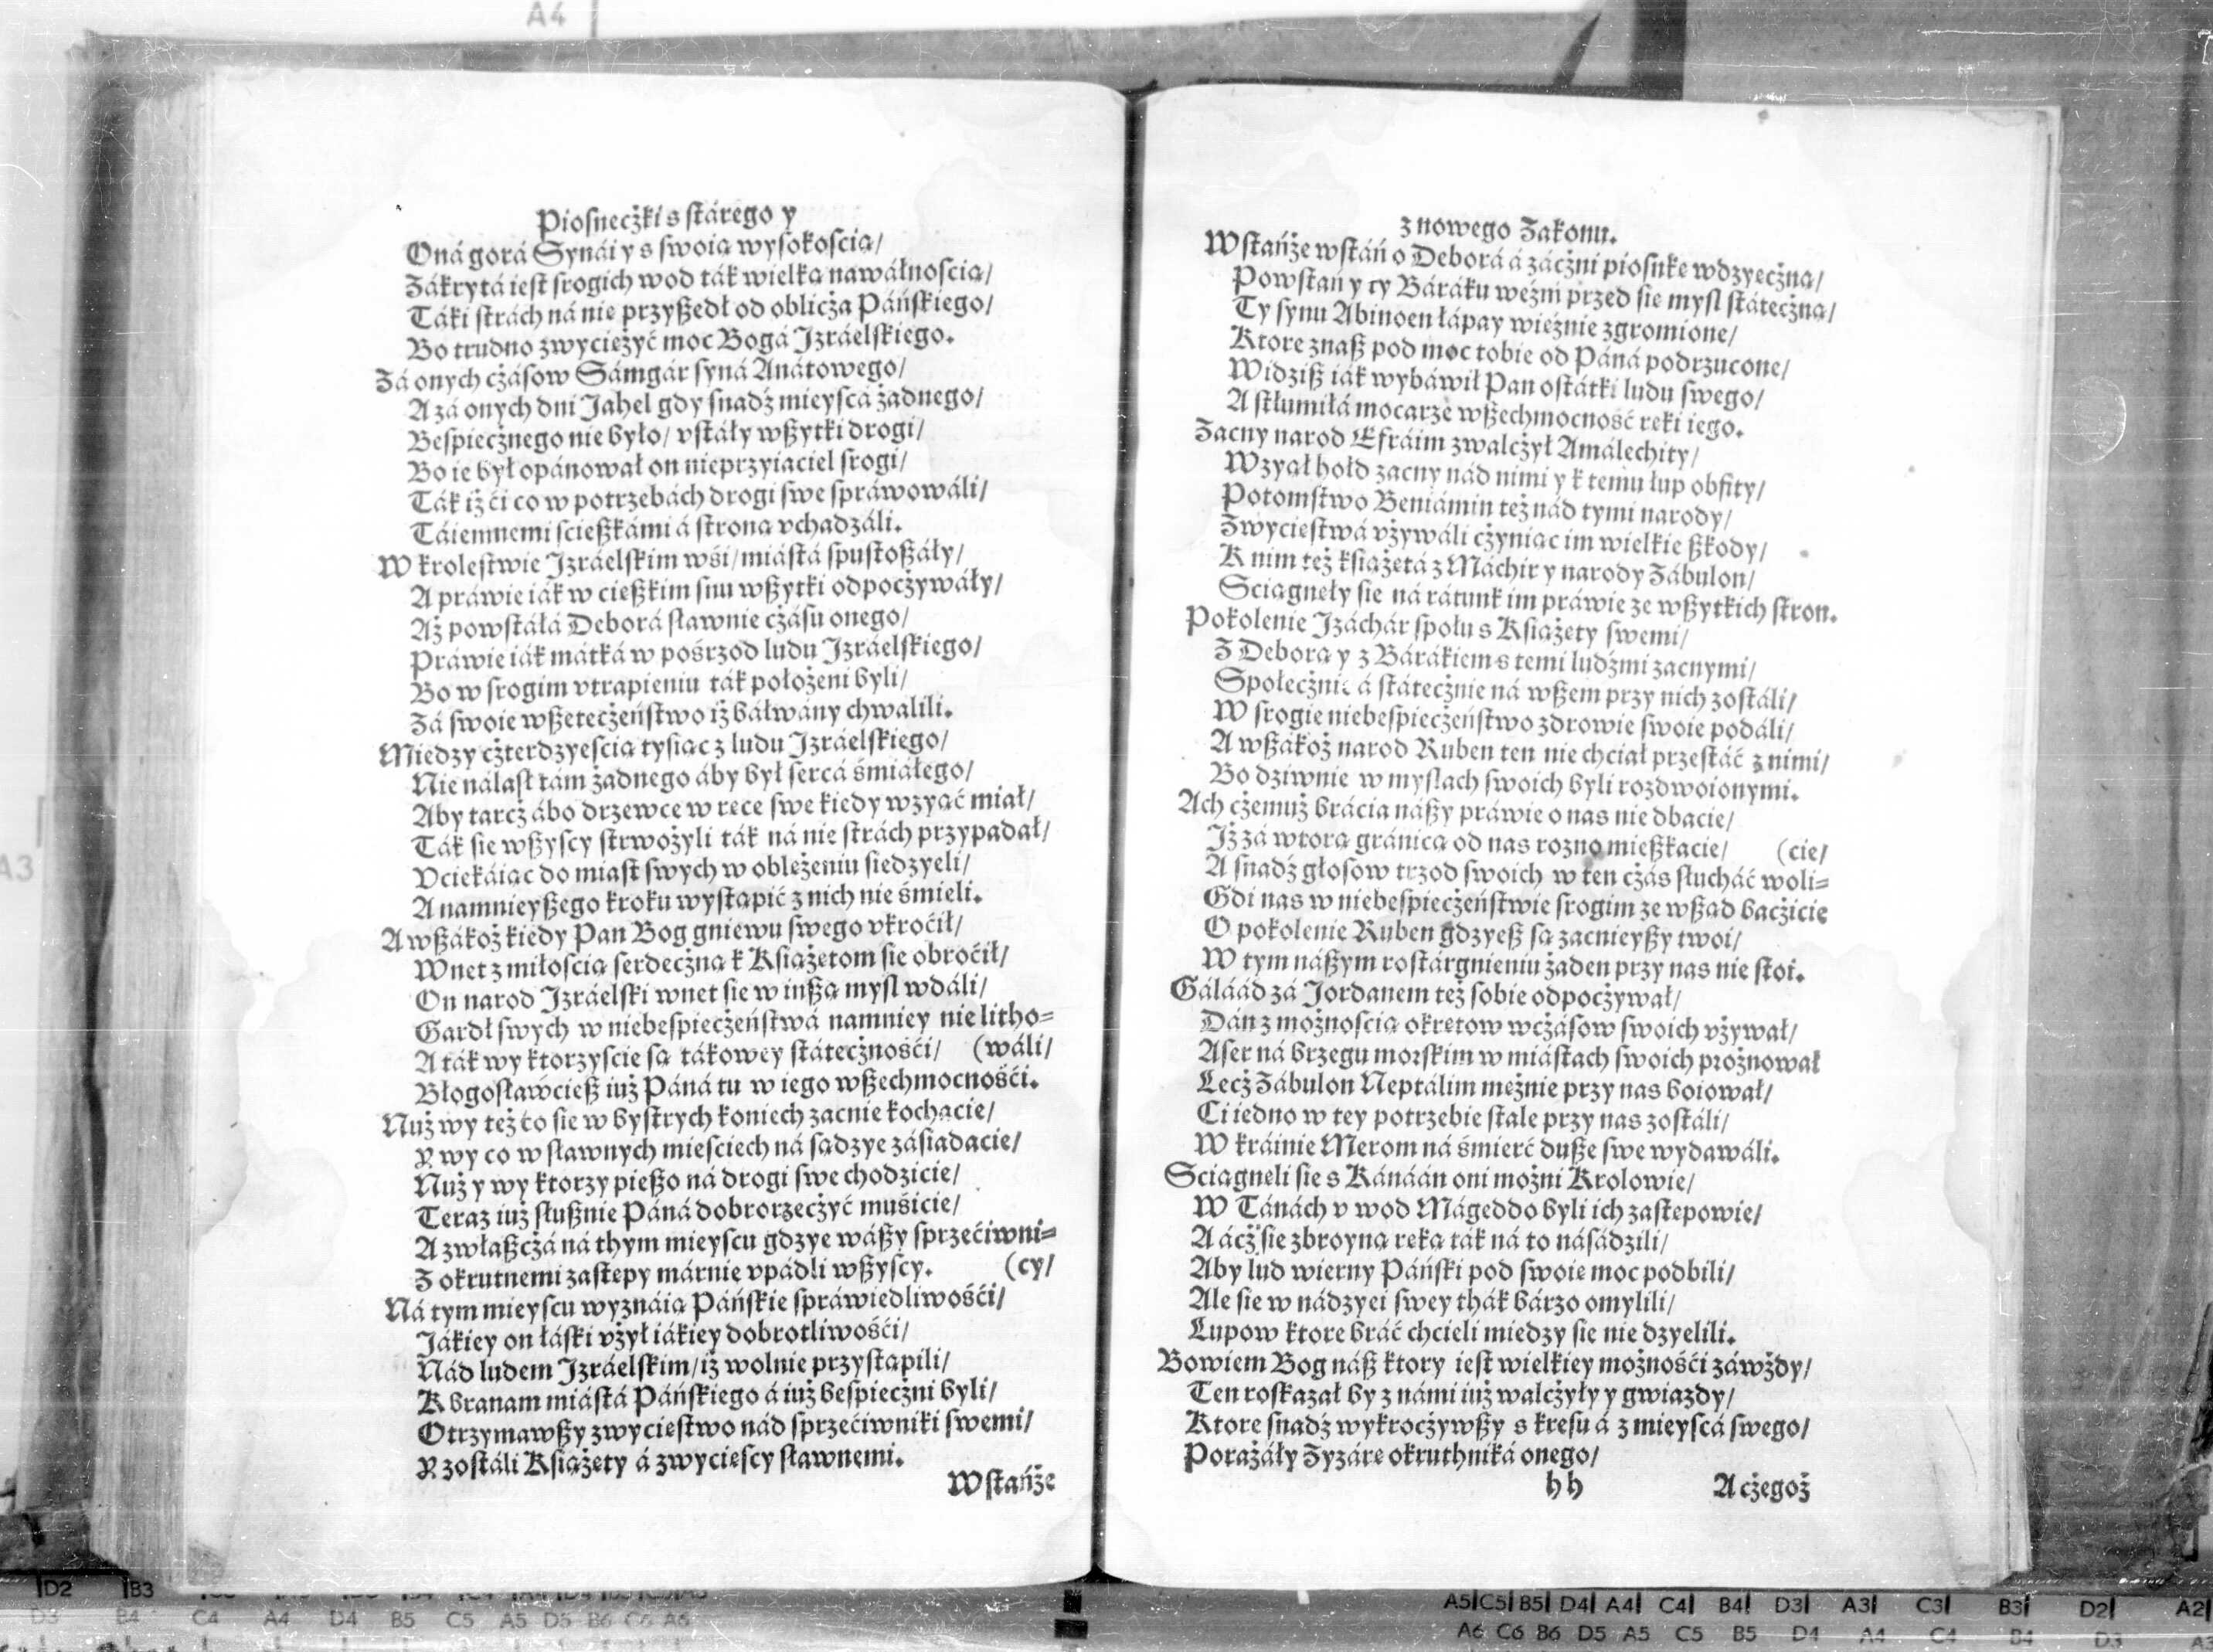 Piosnecżki s stárego y
Oná gorá Synái y s swoią wysokoscią/
Zákrytá iest srogich wod ták wielką nawáłnoscią/
Táki strách ná nie przyßedł od oblicża Páńskiego/
Bo trudno zwyciężyć moc Bogá Izráelskiego.
Zá onych cżásow Sámgár syná Anátowego/
A zá onych dni Jahel gdy snadź mieyscá żadnego/
Bespiecżnego nie było/ vstáły wßytki drogi/
Bo ie był opánował on nieprzyiaciel srogi/
Ták iż ći co w potrzebách drogi swe spráwowáli/
Táiemnemi scießkámi á stroną vchadzáli.
W krolestwie Izráelskim wśi/ miástá spustoßáły/
A práwie iák w cießkim snu wßytki odpocżywáły/
Aż powstáłá Deborá sławnie cżásu onego/
Práwie iák mátká w pośrzod ludu Izráelskiego/
Bo w srogim vtrapieniu ták położeni byli/
Zá swoie wßetecżeństwo iż báłwány chwalili.
Miedzy cżterdzyescią tysiąc z ludu Izráelskiego/
Nie nálasł tám żadnego áby był sercá śmiáłego/
Aby tarcż ábo drzewce w ręce swe kiedy wzyąć miał/
Ták sie wßyscy strwożyli ták ná nie strách przypadał/
Vciekáiąc do miast swych w oblężeniu siedzyeli/
A namnieyßego kroku wystąpić z nich nie śmieli.
A wßákoż kiedy Pan Bog gniewu swego vkroćił/
Wnet z miłoscią serdecżną k Książętom sie obroćił/
On narod Izráelski wnet sie w inßą mysl wdáli/
Gardł swych w niebespiecżeństwá namniey nie litho⸗
A ták wy ktorzyscie są tákowey státecżnośći/ (wáli/
Błogosławćieß iuż Páná tu w iego wßechmocnośći.
Nuż wy też co sie w bystrych koniech zacnie kochacie/
Y wy co w sławnych miesciech ná sądzye zásiadacie/
Nuż y wy ktorzy pießo ná drogi swe chodzicie/
Teraz iuż słußnie Páná dobrorzecżyć muśicie/
A zwłaßcżá ná thym mieyscu gdzye wáßy sprzećiwni⸗
Z okrutnemi zastępy márnie vpádli wßyscy. (cy/
Ná tym mieyscu wyznáią Páńskie spráwiedliwośći/
Jákiey on łáski vżył iákiey dobrotliwośći/
Nád ludem Izráelskim/ iż wolnie przystąpili/
K branam miástá Páńskiego á iuż bespiecżni byli/
Otrzymawßy zwycięstwo nád sprzećiwniki swemi/
Y zostáli Książęty á zwyciescy sławnemi.
Wstańże
z nowego Zakonu.
Wstańże wstáń o Deborá á zácżni piosnkę wdzyecżną/
Powstań y ty Báráku weźmi przed się mysl státecżną/
Ty synu Abinoen łápay więźnie zgromione/
Ktore znaß pod moc tobie od Páná podrzucone/
Widziß iák wybáwił Pan ostátki ludu swego/
A stłumiłá mocarze wßechmocność ręki iego.
Zacny narod Efráim zwalcżył Amálechity/
Wzyął hołd zacny nád nimi y k temu łup obfity/
Potomstwo Beniámin też nád tymi narody/
Zwycięstwá vżywáli cżyniąc im wielkie ßkody/
K nim też książętá z Máchir y narody Zábulon/
Sciągnęły sie ná rátunk im práwie ze wßytkich stron.
Pokolenie Izáchár społu s Książęty swemi/
Z Deborą y z Bárákiem s temi ludźmi zacnymi/
Społecżnie á státecżnie ná wßem przy nich zostáli/
W srogie niebespiecżeństwo zdrowie swoie podáli/
A wßákoż narod Ruben ten nie chciał przestáć z nimi/
Bo dziwnie w myslach swoich byli rozdwoionymi.
Ach cżemuż brácia náßy práwie o nas nie dbacie/
Iż zá wtorą gránicą od nas rozno mießkacie/ (cie/
A snadź głosow trzod swoich w ten cżás słucháć woli⸗
Gdi nas w niebespiecżeństwie srogim ze wßąd bacżicie
O pokolenie Ruben gdzyeß są zacnieyßy twoi/
W tym náßym rostárgnieniu żaden przy nas nie stoi.
Gáláád zá Jordanem też sobie odpocżywał/
Dán z możnoscią okrętow wcżásow swoich vżywał/
Aser ná brzegu morskim w miástach swoich prożnował
Lecż Zábulon Neptálim mężnie przy nas boiował/
Ci iedno w tey potrzebie stale przy nas zostáli/
W kráinie Merom ná śmierć duße swe wydawáli.
Sciągneli sie s Kánáán oni możni Krolowie/
W Tánách v wod Mágeddo byli ich zastępowie/
A ácż sie zbroyną ręką ták ná to násádzili/
Aby lud wierny Páński pod swoie moc podbili/
Ale sie w nádzyei swey thák bárzo omylili/
Lupow ktore bráć chcieli miedzy się nie dzyelili.
Bowiem Bog náß ktory iest wielkiey możnośći záwżdy/
Ten roskazał by z námi iuż walcżyły y gwiazdy/
Ktore snadź wykrocżywßy s kresu á z mieyscá swego/
Porażáły Zyzáre okruthniká onego/
hh A cżegoż